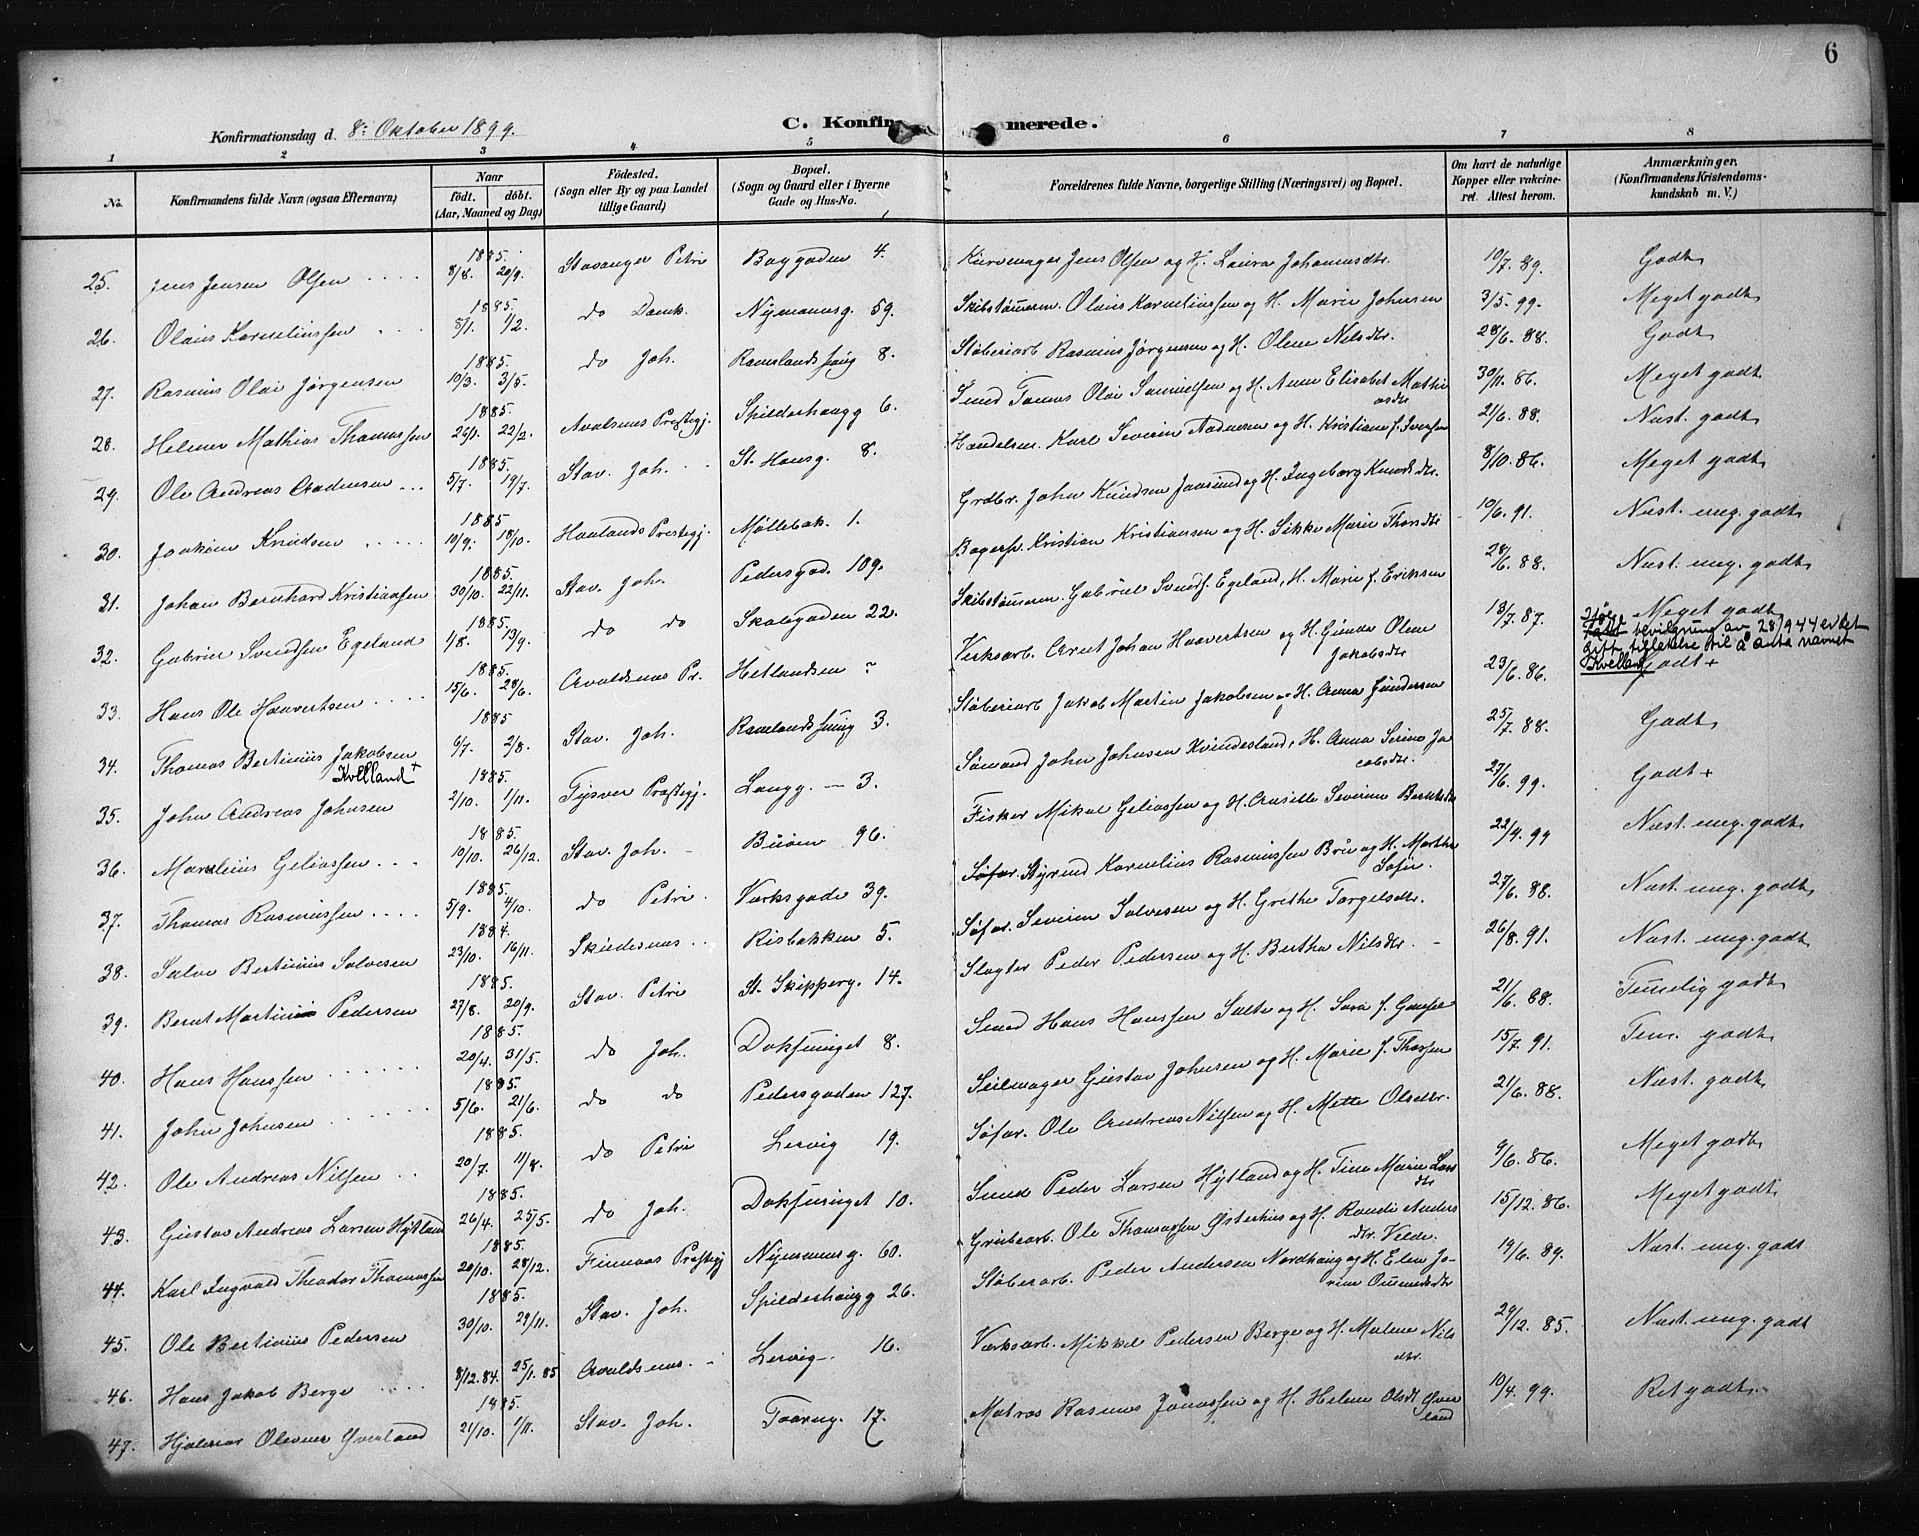 6
Konfirmationsdag d. 8: Oktober 1899.
C. Konfir merede.
1 2 3 4 5 6 7 8
No. Konfirmandens fulde Navn (ogsaa Efternavn)
Naar
født. døbt.
(Aar, Maaned og Dag)
Fødested.
(Sogn eller By og paa Landet
tillige Gaard)
Bopæl.
(Sogn og Gaard eller i Byerne
Gade og Hus-No.
Forældrenes fulde Navne, borgerlige Stilling (Næringsvei) og Bopæl.
Om havt de naturlige
Kopper eller vakcine-
ret. Attest herom.
Anmærkninger.
(Konfirmandens Kristendoms-
kundskab m. V.)
25. Jens Jensen Olsen 1885. 8/8. 20/9. Stavanger Petri Baggaden 4. Kurvmager Jens Olsen og H. Laura Johannesdtr. 10/7. 89. Godt
26. Olaus Korneliussen 1885. 8/1. 1/2. do Domk. Nymannsg. 59. Skibstømrerm. Olaus Korneliussen og H. Marie Johnsen 3/5. 99. Meget godt
27. Rasmus Olai Jørgensen 1885. 10/3. 3/5. do Joh. Ramslandshaug 8. Støberiarb Rasmus Jørgensen og H. Olene Nilsdtr. 28/6. 88. Godt
28. Helmer Mathias Thomassen 1885. 26/1. 22/2. Avalsnes Præstegj. Spilderhaugg 6. Smed Tomas Olai Samuelsen og H. Anne Elisabet Mathi
asdtr 30/11. 86. Meget godt
29. Ole Andreas Aadnesen 1885. 5/7. 19/7. Stav. Joh. St. Hansg. 8. Handelsm. Karl Severin Aadnesen og H. Kristiane f. Iversen 21/6. 88. Næst. godt
30. Joakim Knudsen 1885. 10/9. 18/10. Haalands Prestegj. Møllebak. 1. Grdbr. John Knudsen Jaasund og H. Ingeborg Knudsdtr. 8/10. 86. Meget godt
31. Johan Bernhard Kristiansen 1885. 30/10. 22/11. Stav. Joh. Pedersgad. 109. Bagersv. Kristian Kristiansen og H. Sikke Marie Thordtr 10/6. 91. Næst. meg. godt
32. Gabriel Svendsen Egeland 1885. 1/8. 13/9. do do Skolegaden 22. Skibstømrerm. Gabriel Svends. Egeland, H. Marie f. Eriksen 28/6. 88. Næst. meg. godt
33. Hans Ole Haavertsen 1885. 15/6. 28/6. Avaldsnes Pr. Hetlandsm ? Verksarb. Arnt Johan Haavertsen og H. Gunda Olene
Jakobsdtr 13/7. 87. Meget godt
Ifølge bevilgning av 28/9 44 er det
gitt tillatelse til å anta navnet
Kvelland
34. Thomas Bertinius Jakobsen
Kvelland + 1885 6/7. 2/8. Stav. Joh. Ramslandshaug 3. Støberiarb Jakob Martin Jakobsen og H. Anna Gundersen 23/6. 86. Godt +
35. John Andreas Johnsen 1885. 2/10. 1/11. Tysver Præstegj. Langg. — 3. Sømand John Johnsen Kvindesland, H. Anna Serine Ja
cobsdtr. 25/7. 88. Godt
36. Marelius Geliassen 1885. 10/10. 26/12. Stav. Joh. Buøen 96. Fisker Mikal Geliassen og H. Severine Berntsdtr 27/6. 99. Godt +
37. Thomas Rasmussen 1885. 5/9. 4/10. do Petri Værksgade 39. Søfar. Styrmd Kornelius Rasmussen Bru og H. Martha
Sofie. 22/4. 99 Næst. meg. godt
38. Salve Bertinius Salvesen 1884. 23/10. 16/11. Skudesnes Risbakken 5. Søfar. Severin Salvesen og H. Grethe Torgelsdtr. 27/6. 88. Næst. meg. godt
39. Bernt Martinius Pedersen 1885. 27/8. 20/9. Stav. Petri St. Skipperg. 14. Slagter Peder Pedersen og H. Bertha Nilsdtr. 26/8. 91. Næst. meg. godt
40. Hans Hanssen 1885. 20/4. 31/5. do Joh. Doksmuget 8. Smed Hans Hanssen Salte og H. Sara f. Gausel 21/6. 88. Temmelig godt
41. John Johnsen 1885. 5/6. 21/6. do do Pedersgaden 127. Seilmager Gustav Johnsen og H. Marie f. Thorsen 15/7. 91. Tem. godt
42. Ole Andreas Nilsen 1885. 20/7. 11/8. do Petri Lervig 19. Søfar. Ole Andreas Nilsen og H. Mette Olsdtr. 21/6. 88. Næst. godt
43. Gustav Andreas Larsen Hytland 1885. 26/4. 25/5. do Joh. Doksmuget 10. Smed Peder Larsen Hytland og H. Tine Marie Lars
dtr 9/6. 86. Meget godt
44. Karl Ingvald Theodor Thomassen 1885. 20/10. 28/12. Finnaas Præstegj Nymannsg. 60. Grubearb. Ole Thomassen Østerhus og H. Randi Anders
dtr. Velde. 15/12. 86. Meget godt
45. Ole Bertinius Pedersen 1885. 30/10. 29/11. Stav. Joh. Spilderhaugg 26. Støberarb. Peder Andersen Nordhaug og H. Elen Jo-
rine Oumedsdtr 19/6. 89. Næst. meg. godt
46. Hans Jakob Berge 8/12. 84. 25/1. 85 Avaldsnes Lervig 16. Værksarb. Mikkel Pedersen Berge og H. Malene Nils
dtr. 29/12. 85. Næst. meg. godt
47. Hjalmar Olevner Øverland 1885. 21/10. 1/11. Stav. Joh. Taarng. 17. Matros Rasmus Jonassen og H. Helene Olsdt Øver
land 10/4. 99. Ret godt